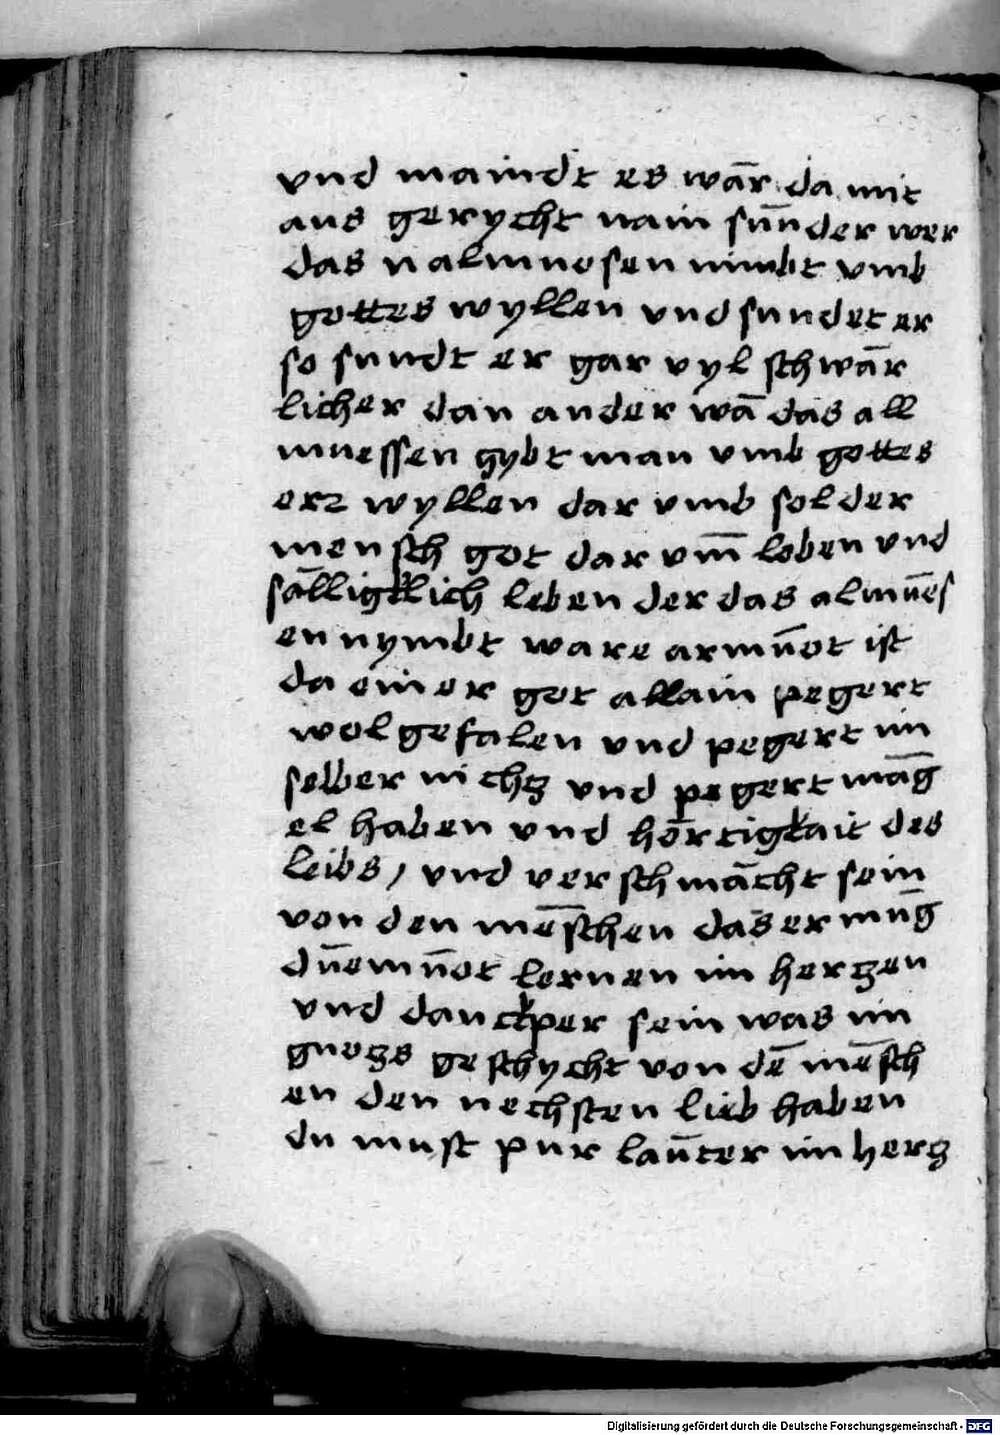 vnd maindt es wār da mit
aus gerycht nain sūnder wer
das nalmuosen nimbt vmb
gottes wyllen vnd sundet er
so sundt er gar vyl schwār
licher dan ander wā das all
muessen gybt man vmb gottes
erz wyllen dar vmb sol der
mensch got dar vm̄ loben vnd
sālligklich leben der das almūes
en nymbt ware armūot ist
da einer got allain pegert
wolgefalen vnd pegert im
selber nichtz vnd pegert māg
el haben vnd hōrtigkait des
leibs / vnd verschmācht sein
von den mēschen das er mūg
dūemūot lernen im hertzen
vnd danckper sein was im
guotzs geschycht von dē mēsch
en den nechsten lieb haben
du must pur laūter im hertz
Digitalisierung gefördert durch die Deutsche Forschungsgemeinschaft - DFG